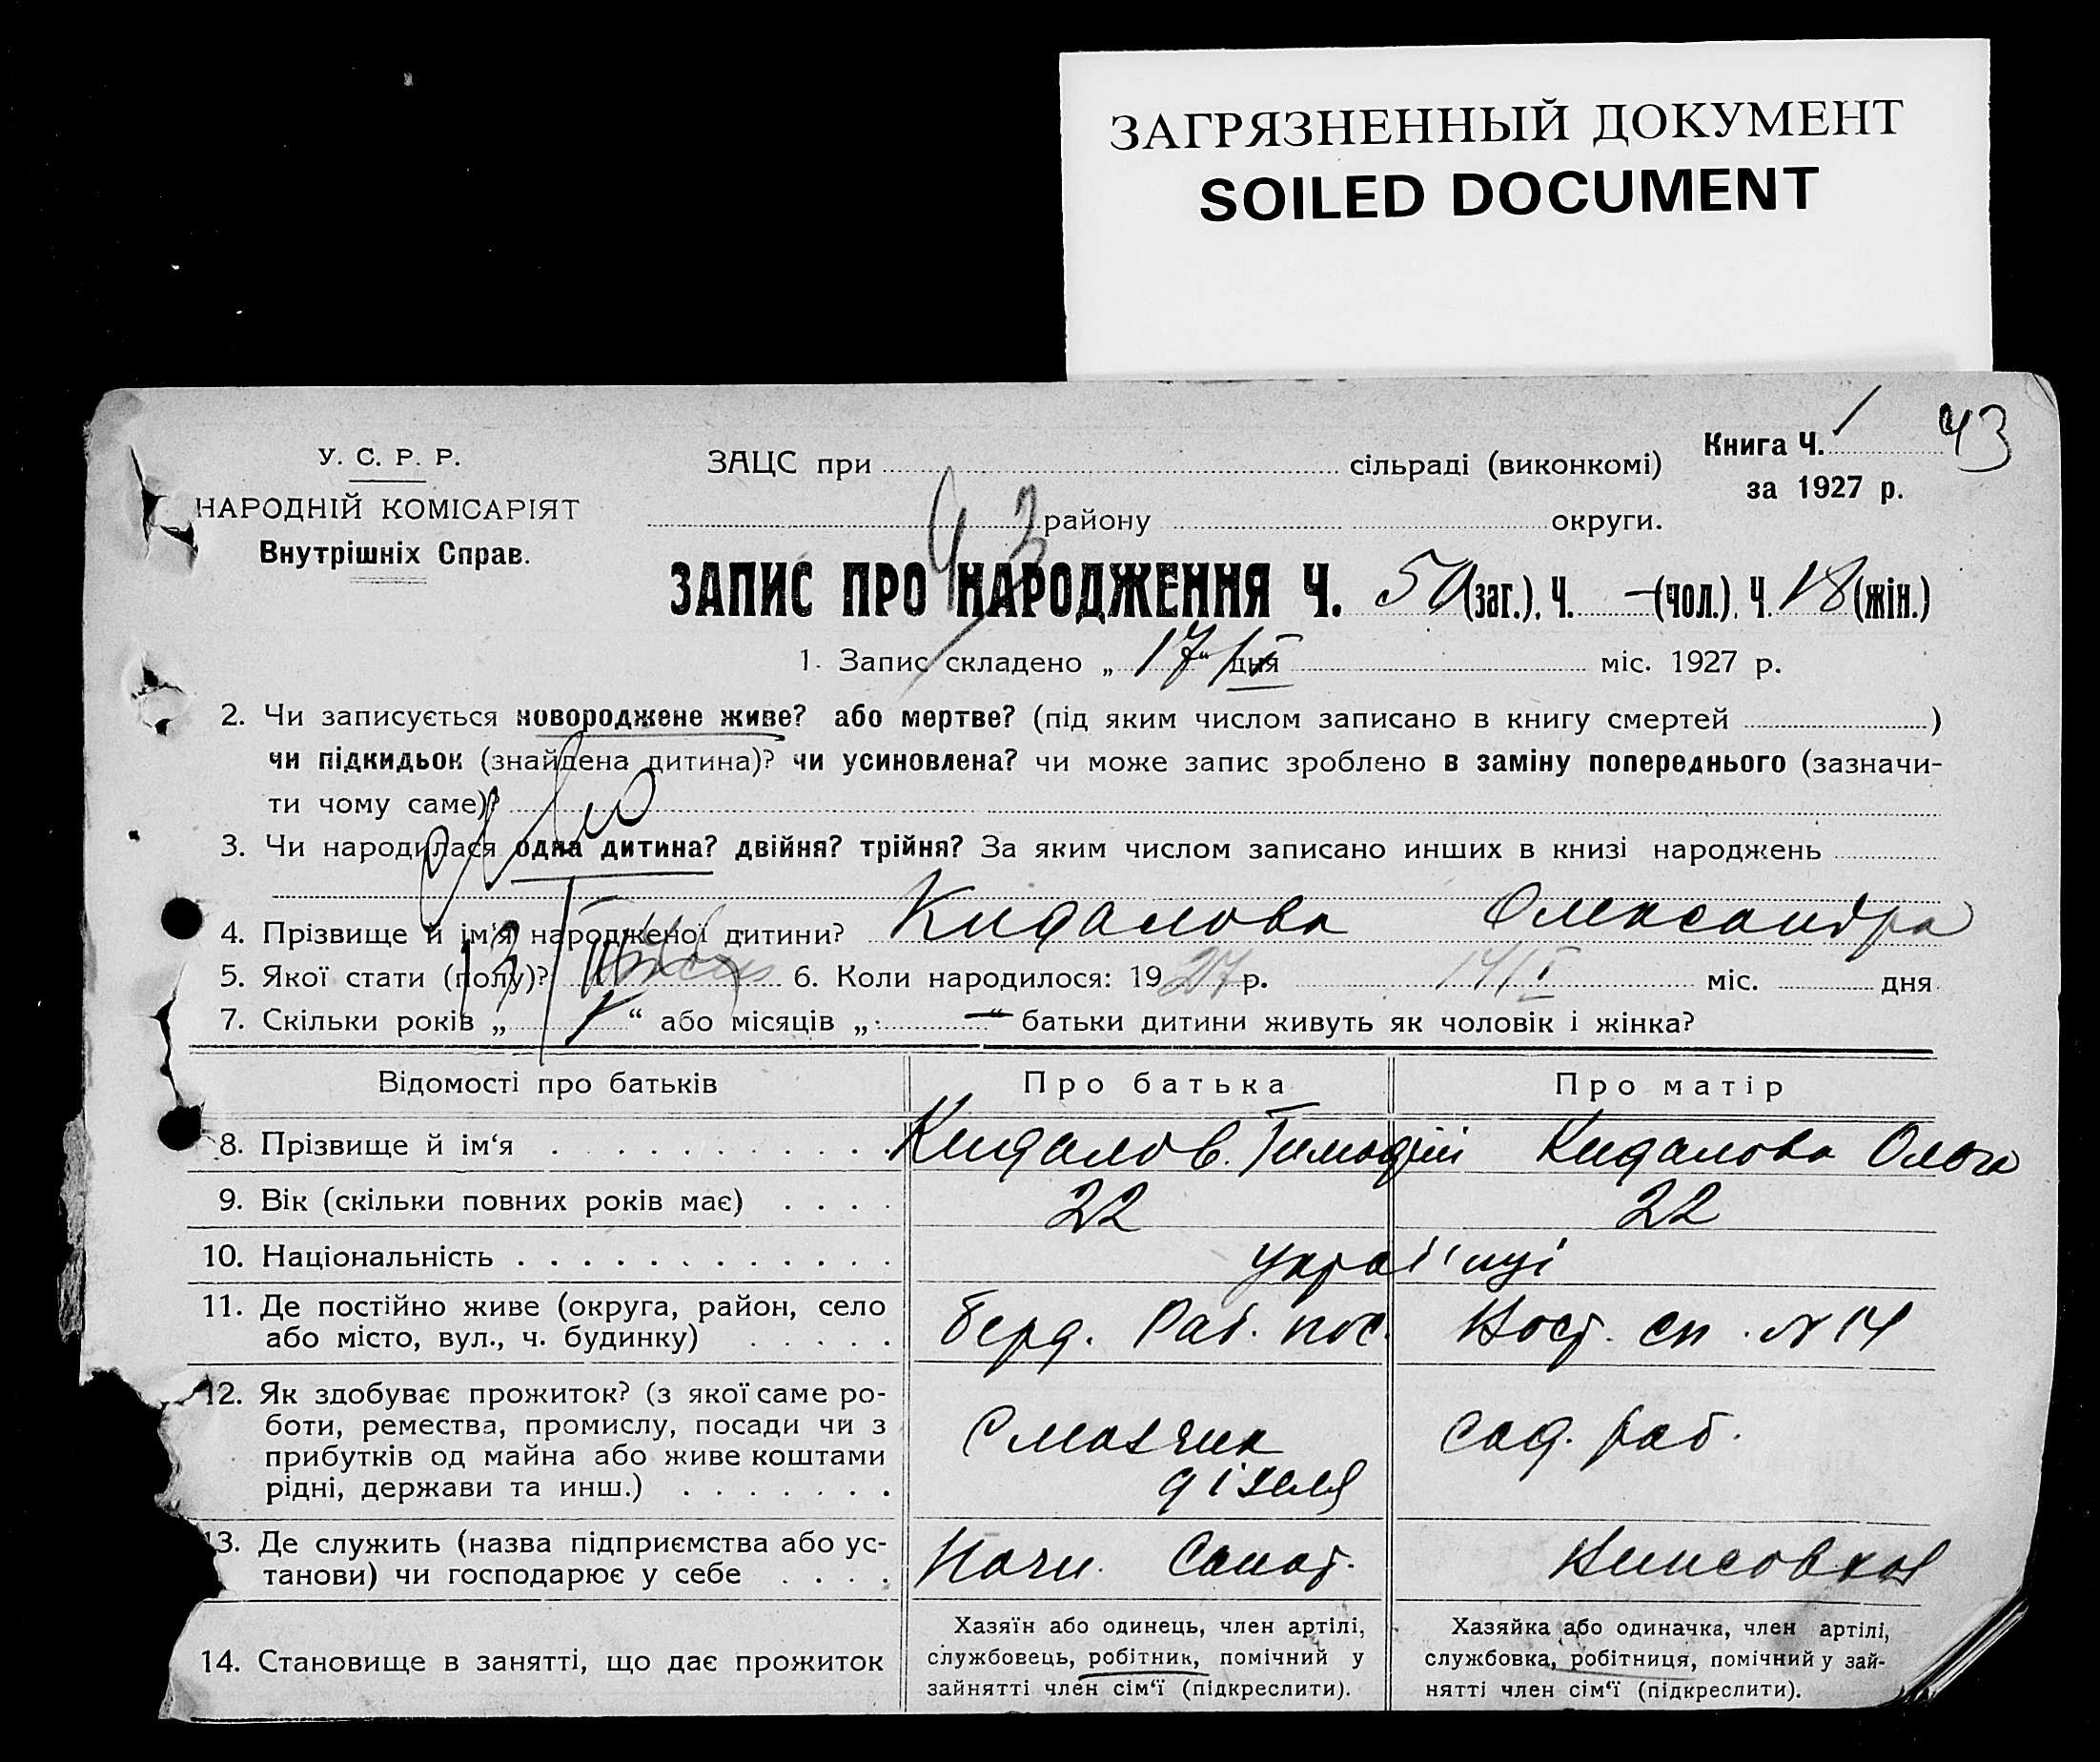 ЗАГРЯЗНЕННЫЙ ДОКУМЕНТ
SOILED DOCUMENT
Книга Ч. 1 43
за 1927 р.
У. С. Р. Р.
НАРОДНІЙ КОМІСАРІЯТ
Внутрішніх Справ.
ЗАЦС при сільраді (виконкомі)
району округи.
43
ЗАПИС ПРО НАРОДЖЕННЯ Ч. (заг.), Ч. – (чол.), Ч. 18 (жін.)
1. Запис складено „ 17 “ дня міс. 1927 р.
2. Чи записується новороджене живе? або мертве? (під яким числом записано в книгу смертей )
чи підкидьок (знайдена дитина)? чи усиновлена? чи може запис зроблено в заміну попереднього (зазначи-
ти чому саме)?
3. Чи народилася одна дитина? двійня? трійня? За яким числом записано инших в книзі народжень
4. Прізвище й ім'я народженої дитини? Кидалова Олександра
5. Якої стати (полу)? 6. Коли народилося: 1927 р. 14/I міс. дня
7. Скільки років „ “ або місяців „ – “ батьки дитини живуть як чоловік і жінка?
Відомості про батьків Про батька Про матір
8. Прізвище й ім‘я Кидалов Тимофій Кидалова Ольга
9. Вік (скільки повних років має) 22 22
10. Національність українці
11. Де постійно живе (округа, район, село Берд. Раб. пос. сп. N 14
або місто, вул., ч. будинку)
12. Як здобуває прожиток? (з якої саме ро-
боти, ремества, промислу, посади чи з Смазчик сад. раб.
прибутків од майна або живе коштами
рідні, держави та инш.) дізеля
13. Де служить (назва підприємства або ус-
танови) чи господарює у себе Санат.
14. Становище в занятті, що дає прожиток
Хазяїн або одинець, член артілі,
службовець, робітник, помічний у
зайнятті член сім‘ї (підкреслити).
Хазяйка або одиначка, член артілі,
службовка, робітниця, помічний у зай-
нятті член сім‘ї (підкреслити).